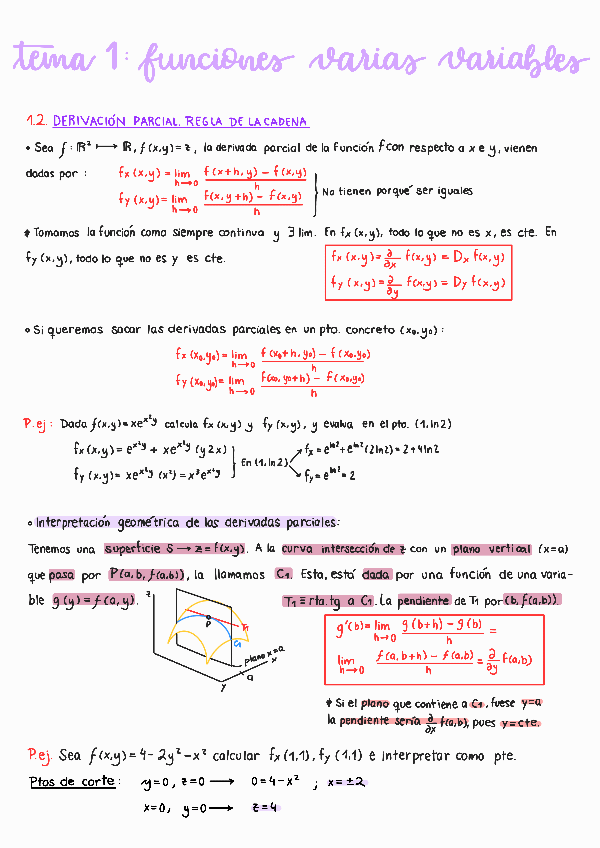 tema 1: funciones varias variables
1.2. DERIVACIÓN PARCIAL. REGLA DE LA CADENA
• Sea f: ℝ² ⟼ ℝ, f(x,y)=z, la derivada parcial de la función f con respecto a x e y, vienen
dadas por: fx (x,y) = lim h→0 f(x+h, y) − f(x,y) / h
fy (x,y) = lim h→0 f(x, y+h) − f(x,y) / h
No tienen porqué ser iguales
* Tomamos la función como siempre continua y ∃ lim. En fx (x,y), todo lo que no es x, es cte. En
fy (x,y), todo lo que no es y es cte.
fx (x,y) = ∂/∂x f(x,y) = Dx f(x,y)
fy (x,y) = ∂/∂y f(x,y) = Dy f(x,y)
• Si queremos sacar las derivadas parciales en un pto. concreto (x₀,y₀):
fx (x₀,y₀) = lim h→0 f(x₀+h, y₀) − f(x₀,y₀) / h
fy (x₀,y₀) = lim h→0 f(x₀, y₀+h) − f(x₀,y₀) / h
P.ej: Dada f(x,y)=xe^x²y calcula fx (x,y) y fy (x,y), y evalua en el pto. (1,ln2)
fx (x,y) = e^x²y + xe^x²y (y2x)
fy (x,y) = xe^x²y (x²) = x³e^x²y
En (1,ln2)
fx = e^ln2 + e^ln2 (2ln2) = 2+4ln2
fy = e^ln2 = 2
• Interpretación geométrica de las derivadas parciales:
Tenemos una superficie S → z = f(x,y). A la curva intersección de z con un plano vertical (x=a)
que pasa por P(a,b,f(a,b)), la llamamos C₁. Esta, está dada por una función de una varia-
ble g(y) = f(a,y). T₁ ≡ rta.tg a C₁. La pendiente de T₁ por (b,f(a,b))
z
P
T₁
C₁
plano x=a
a
x
y
g'(b) = lim h→0 g(b+h) − g(b) / h =
lim h→0 f(a,b+h) − f(a,b) / h = ∂/∂y f(a,b)
* Si el plano que contiene a C₁, fuese y=a
la pendiente sería ∂/∂x f(a,b), pues y=cte.
P.ej. Sea f(x,y) = 4 − 2y² − x² calcular fx (1,1), fy (1,1) e interpretar como pte.
Ptos de corte: y=0, z=0 → 0=4−x² ; x=±2
x=0, y=0 → z=4